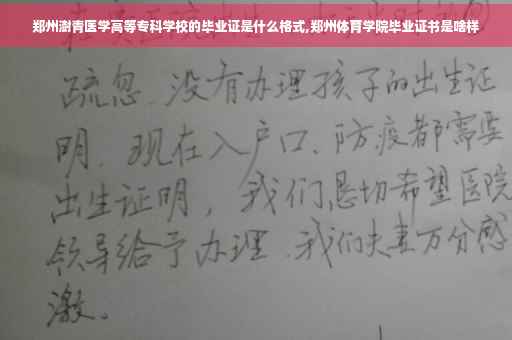 郑州澍青医学高等专科学校的毕业证是什么格式,郑州体育学院毕业证书是啥样
疏忽.没有办理孩子的出生证
明.现在入户口、防疫都需要
出生证明，我们恳切希望医院
领导给予办理.我们夫妻万分感
激。